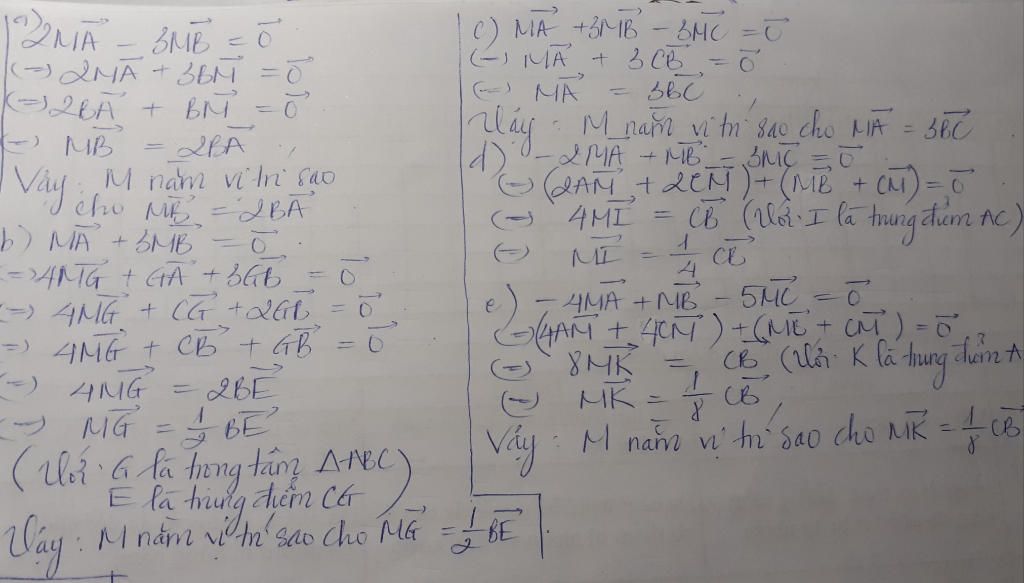 a)
2MA⃗ - 3MB⃗ = 0⃗
(=) 2MA⃗ + 3BM⃗ = 0⃗
(=) 2BA⃗ + BM⃗ = 0⃗
(=) MB⃗ = 2BA⃗,
Vậy: M nằm vị trí sao
cho MB⃗ = 2BA⃗
b) MA⃗ + 3MB⃗ = 0⃗
(=) 4MG⃗ + GA⃗ + 3GB⃗ = 0⃗
(=) 4MG⃗ + CG⃗ + 2GB⃗ = 0⃗
(=) 4MG⃗ + CB⃗ + GB⃗ = 0⃗
(=) 4MG⃗ = 2BE⃗
(=) MG⃗ = 1/2 BE⃗
(Với: G là trọng tâm ΔABC
E là trung điểm CG)
Vậy: M nằm vị trí sao cho MG⃗ = 1/2 BE⃗.
c) MA⃗ + 3MB⃗ - 3MC⃗ = 0⃗
(=) MA⃗ + 3CB⃗ = 0⃗
(=) MA⃗ = 3BC⃗,
Vậy: M nằm vị trí sao cho MA⃗ = 3BC⃗
d) -2MA⃗ + MB⃗ - 3MC⃗ = 0⃗
(=) (2AM⃗ + 2CM⃗) + (MB⃗ + CM⃗) = 0⃗
(=) 4MI⃗ = CB⃗ (Với: I là trung điểm AC)
(=) MI⃗ = 1/4 CB⃗
e) -4MA⃗ + MB⃗ - 5MC⃗ = 0⃗
(=) (4AM⃗ + 4CM⃗) + (MB⃗ + CM⃗) = 0⃗
(=) 8MK⃗ = CB⃗ (Với: K là trung điểm A
(=) MK⃗ = 1/8 CB⃗,
Vậy: M nằm vị trí sao cho MK⃗ = 1/8 CB⃗